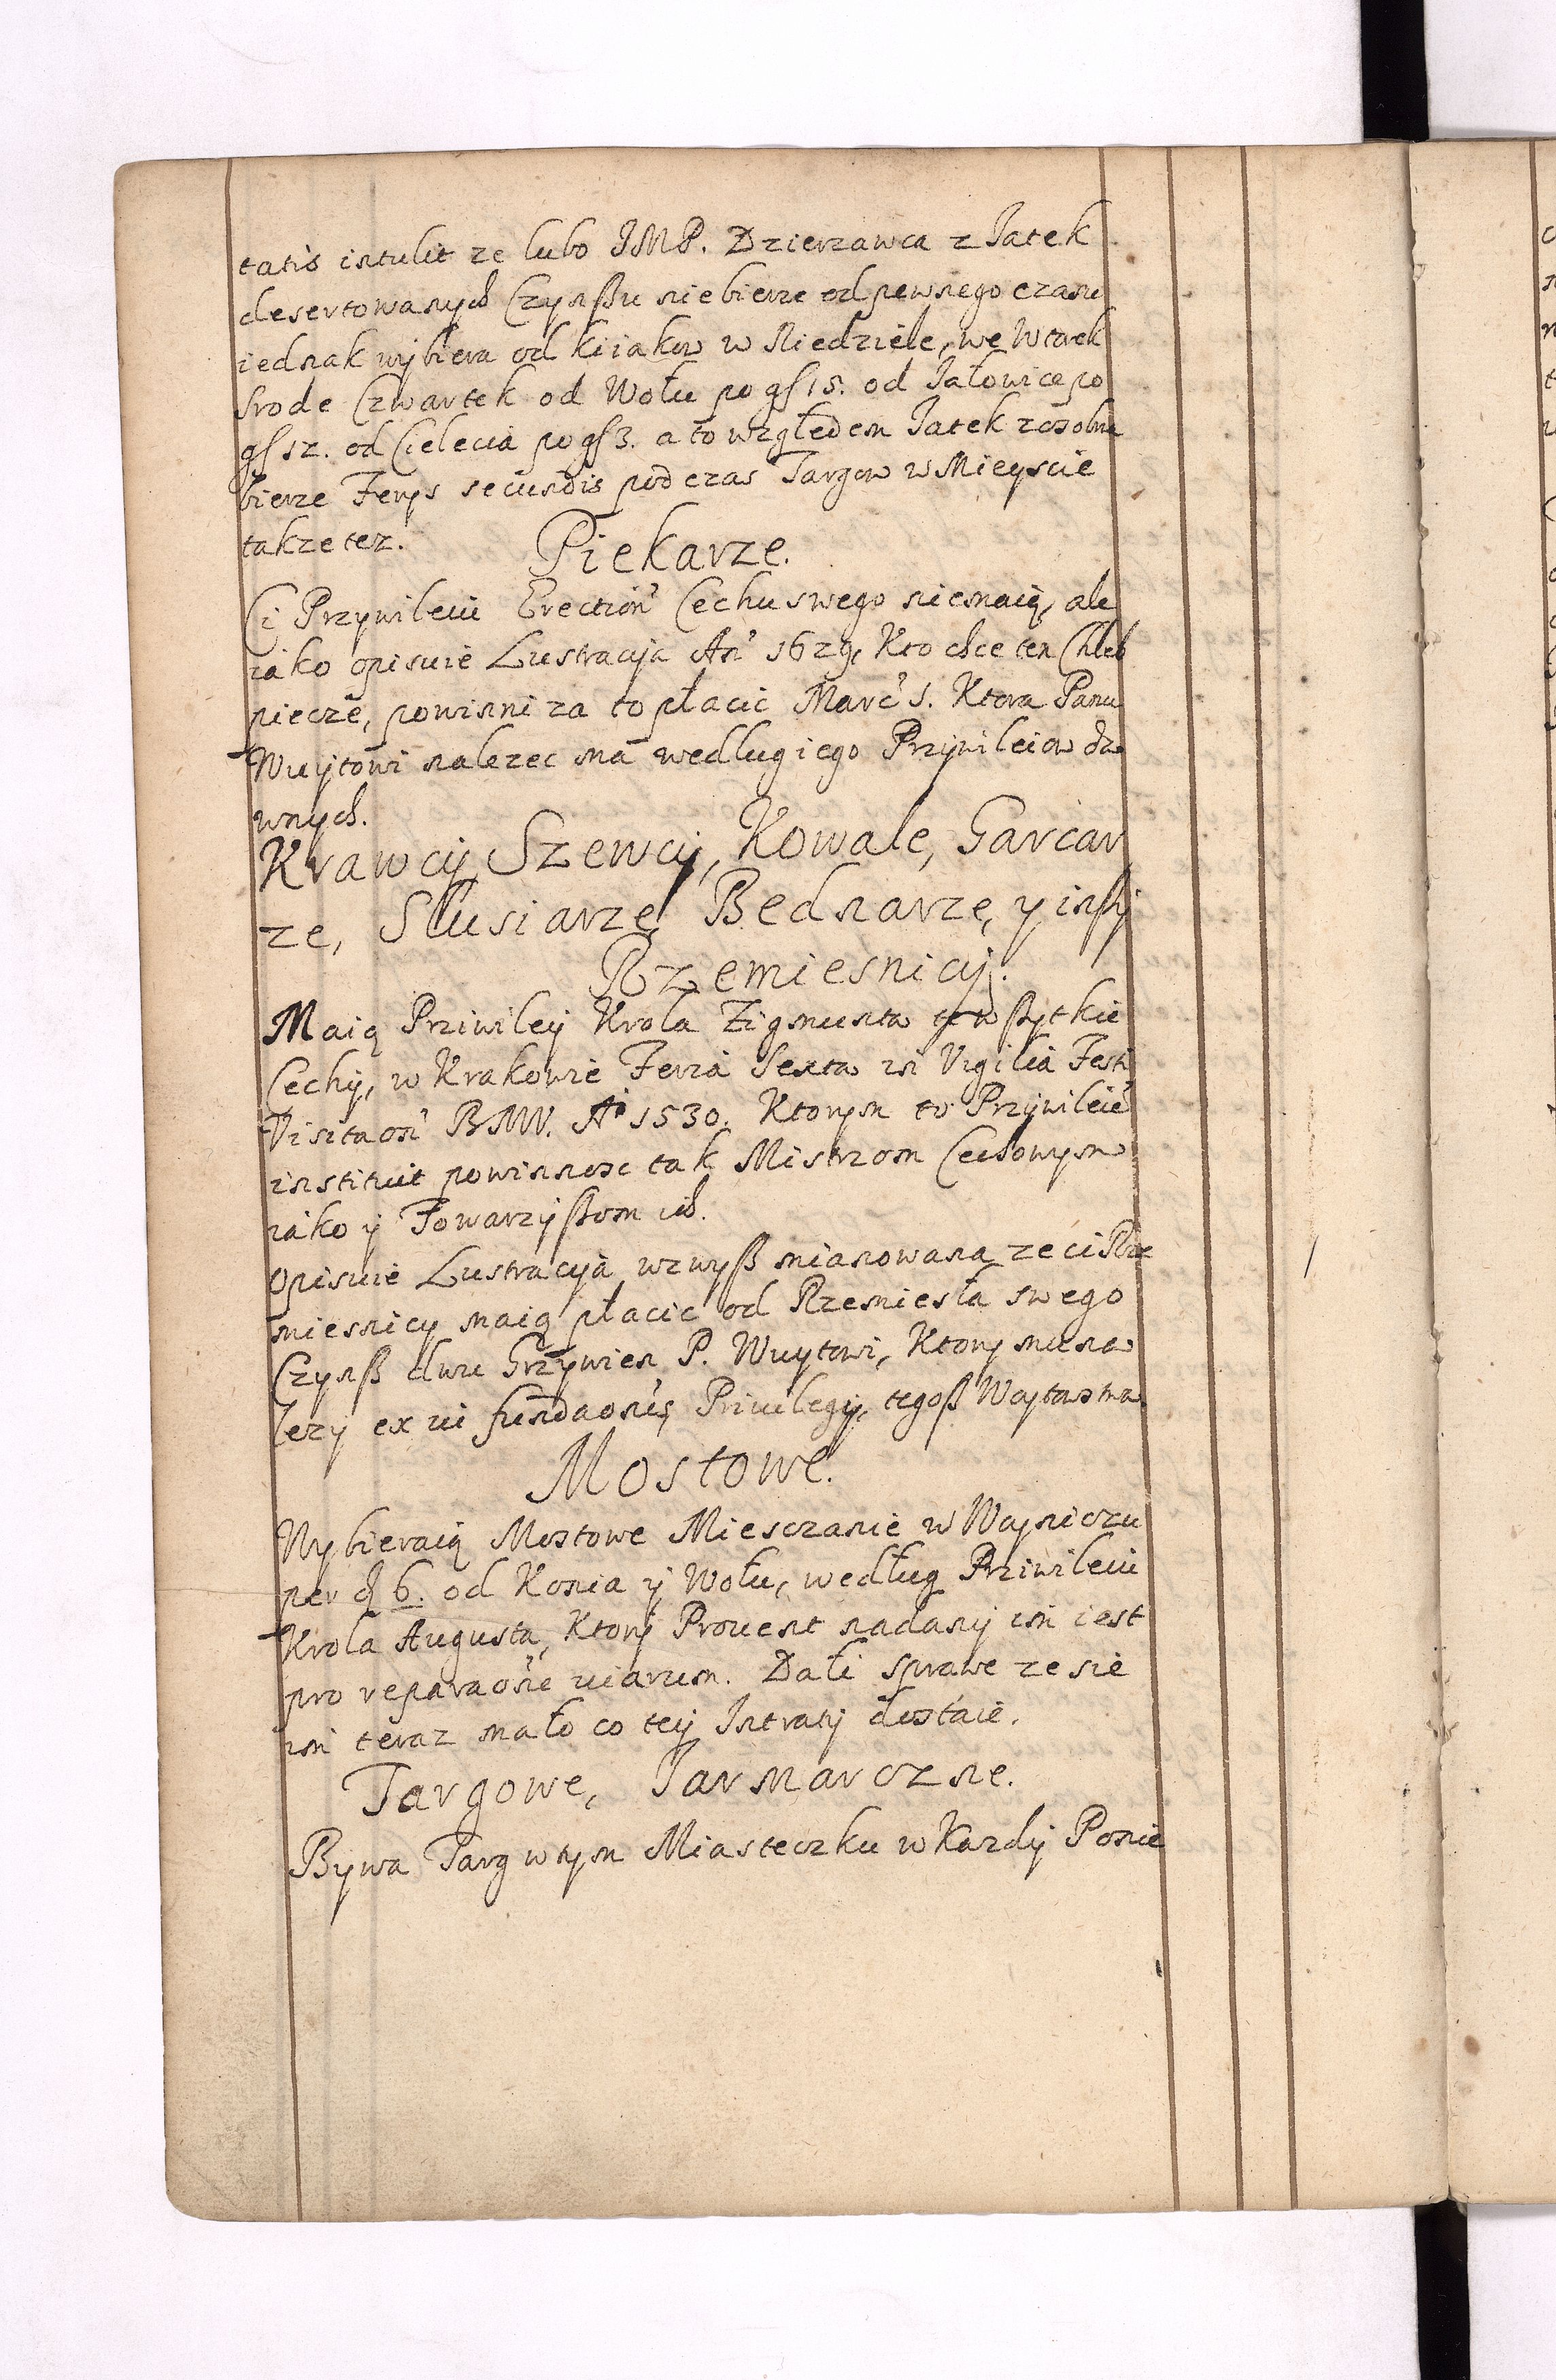 tatis intulit ze lubo JMP. Dzierzawca z Jatek
desertowanych Czynßu niebierze od pewnego czasu
iednak wybiera od Kiiakow w Niedziele, we Wtorek
Srode Czwartek od Wołu po gſ 15. od Jałowice po
gſ 12. od Cielecia po gſ 3. a to względem Jatek zosobna
bierze Ferys secundis podczas Targow w Mieyscie
takze tez.
Piekarze.
Ci Przywileiu Erection' Cechu swego niemaią, ale
iako opisuie Lustracyia An' 1629, Kto chce ten Chleb
piecze, powinni za to płacic Marc' 1. Ktora Panu
Wuytowi nalezec ma wedlug iego Przywileiow da
wnych.
Krawcy, Szewcy, Kowale, Garcar
ze, Slusiarze, Bednarze, y inßy
Rzemiesnicy.
Maią Priwiley Krola Zigmunta wßytkie
Cechy, w Krakowie Feria Sexta in Vigilia Festi
Visitaon' BMV. A° 1530. Ktorym to Przywileie'
instituit powinnosc tak Mistrzom Cechowym
iako y Towarzyßom ich.
Opisuie Lustracyia wzwyß mianowana ze ci Rze
miesnicy maią płacic od Rzemiesła swego
Czynß dwu Grzywien P. Wuytowi, Ktory mu na
lezy ex vi fundaonis Privilegy, tegoß Woytowstwa
Mostowe.
Wybieraią Mostowe Miesczanie w Woyniczu
per ₰ 6. od Konia y Wołu, według Priwileiu
Krola Augusta, Ktory Provent nadany im iest
pro reparaone viarum. Dali sprawe ze sie
im teraz mało co tey Intraty dostaie.
Targowe, Jarmarczne.
Bywa Targ w tym Miasteczku w Kazdy Ponie